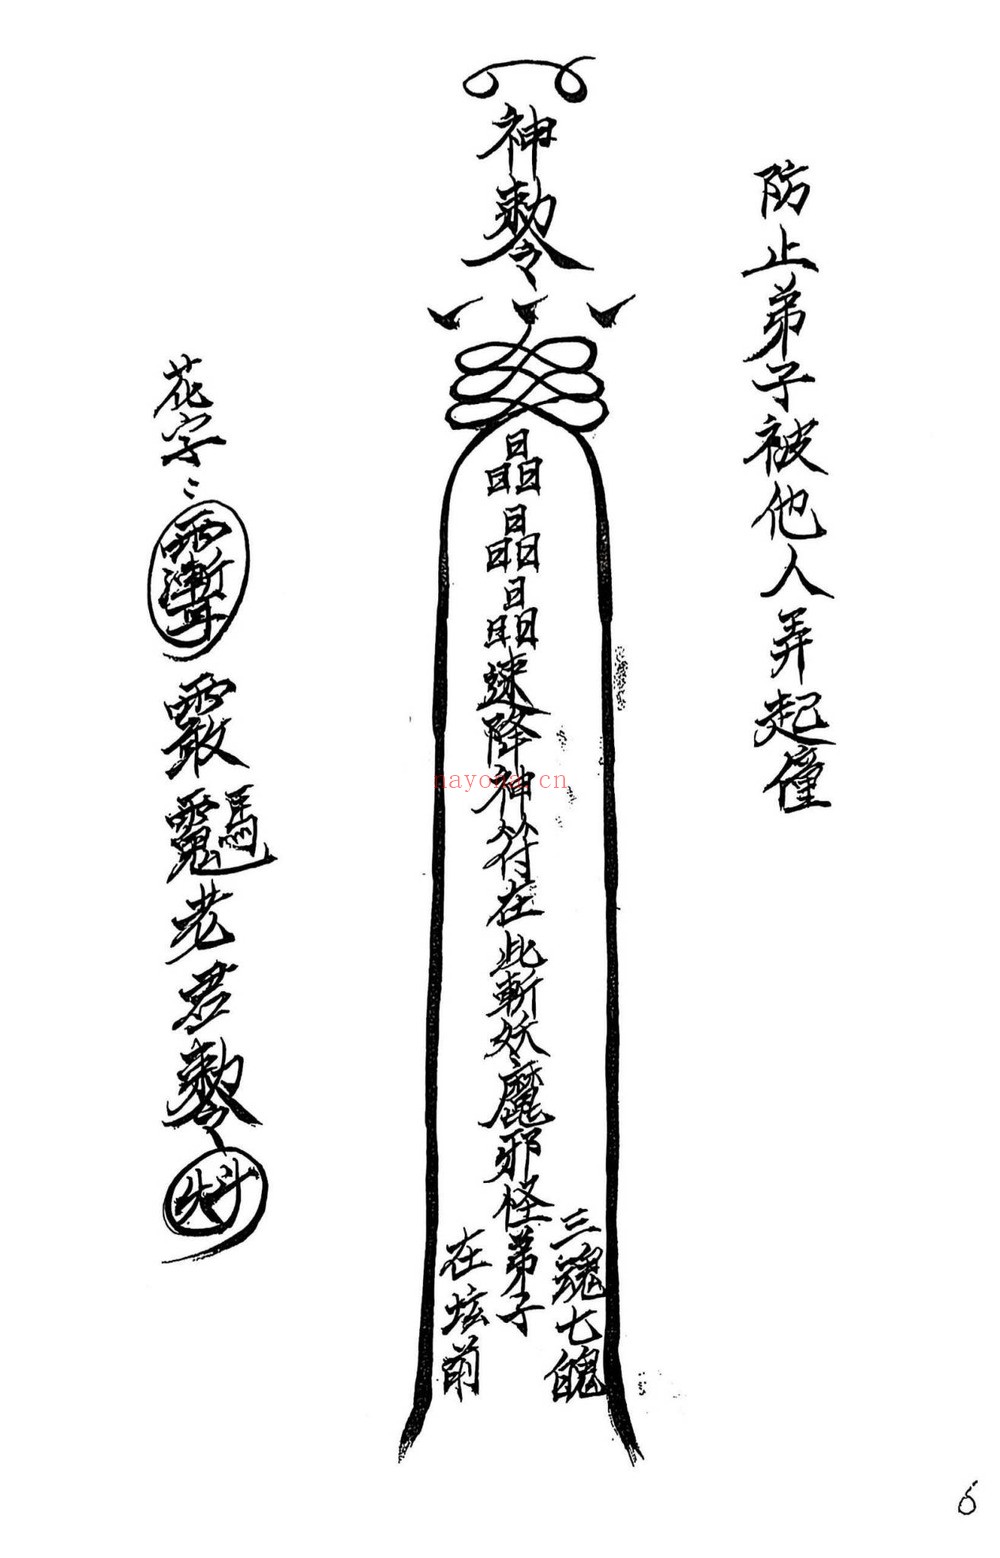 防止弟子被他人弄起僮
神
勅令
晶晶晶速降神符在此斬妖魔邪怪弟子
三魂七魄
在坛前
花字:
老君勅令
nayona.cn
6